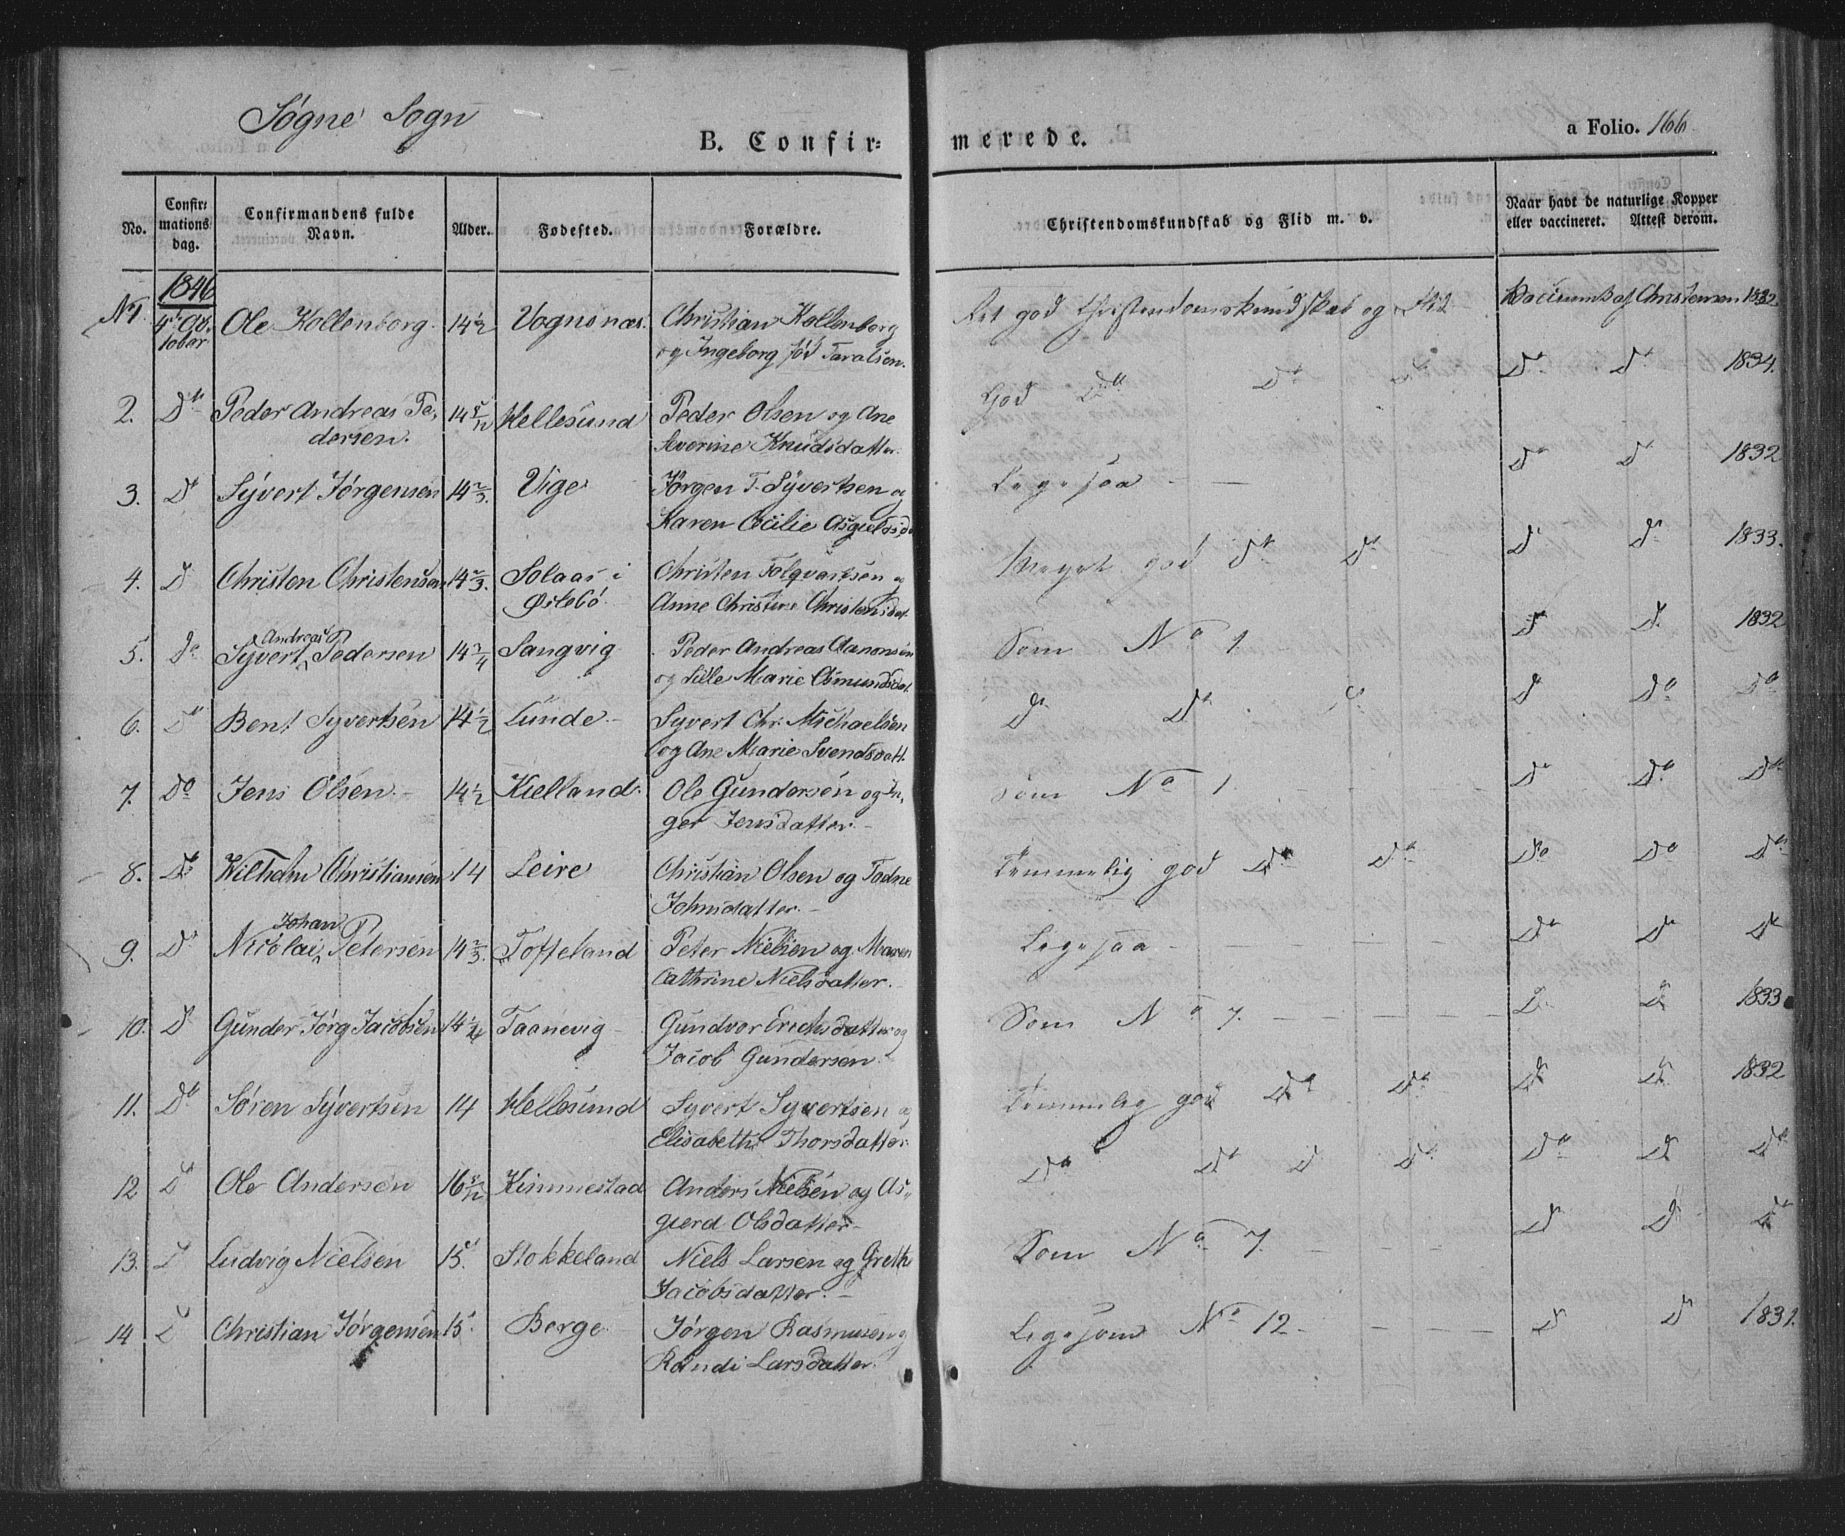 Søgne Sogn
B. Confirmerede.
a Folio. 166
No.
Confirmations dag.
Confirmandens fulde Navn.
Alder.
Fødested.
Forældre.
Christendomskundskab og Flid m. v.
Naar havt de naturlige Kopper eller vaccineret. Attest derom.
1846
N 1. 4de Octobar Ole Kollenborg 14 1/2 Vognsnas. Christian Kollenborg Ret god Christendomskundskab og Flid Christensen 1832.
og Ingeborg fød Taralsen.
2. Do Peder Andreas Pe- 14 5/12 Hellesund Peder Olsen og Ane God Do Do Do Do 1834.
dersen. Severine Knudsdatter.
3. Do Syvert Jørgensen 14 2/3. Vige Jørgen T. Syvertsen og Ligesaa Do Do 1832
Karen Cecilie
4. D Christen Christensen 14 2/3. Solaas i Christen Folqvartsen og Meget god Do Do Do Do 1833.
Østebø. Anne Christine Christensdat
5. Do Syvert Andreas Pedersen 14 3/4 Sangvig Peder Andreas Aanonsen Som No 1 D D. 1832
og Lille Marie Asmundsdat
6. D Bent Syvertsen 14 1/2 Lunde Syvert Chr. Michaelsen D Do D D Do Do
og Ane Marie Svendsdatt.
7. Do Jens Olsen 14 1/2 Kielland. Ole Gundersen og In- Som No 1 Do Do Do
ger Jensdatter
8. Do Wilhelm Christiansen 14 Leire Christian Olsen og Todne Temmelig god Do Do Do Do Do
Johnsdatter.
9. Do Nicolai Johan Petersen 14 2/3. Tofteland Peter Nielsen og Maren Ligesaa Do Do Do
Cathrine Nielsdatter.
10. D Gunder Jørg Jacobsen 14 Taanevig Gundvor Erichsdatter og Som No 7. D D 1833
Jacob Gundersen
11. Do Søren Syvertsen 14 Hellesund Syvert Syvertsen og Temmelig god Do Do D D 1832
Elisabeth Thorsdatter.
12 D Ole Andersen 16 5/12 Kimmestad Anders Nielsen og As- Do Do D Do Do D Do
gierd Olsdatter
13. D Ludvig Nielsen 15. Stokkeland Niels Larsen og Grethe Som No 7. D D D
Jacobsdatter.
14 D Christian Jørgensen 15 Berge Jørgen Rasmusen og Ligesom No 12. D D 1831.
Randi Larsdatter.